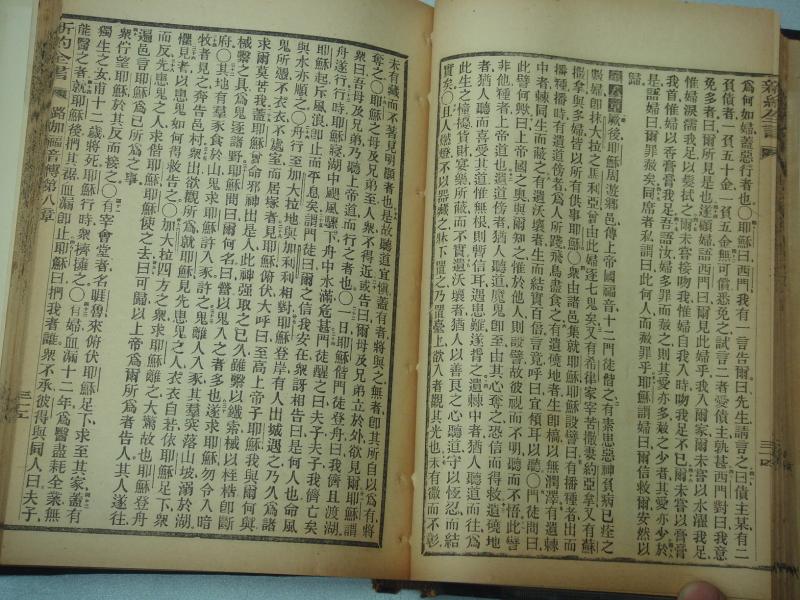 新約全書
三十四
為何如婦蓋惡行者也○耶穌曰西門我有一言告爾曰先生請言之曰債主某有二
負債者一負五十金一負五金無可償悉免之試言二者愛債主孰甚西門對曰我意
免多者曰爾所見是也遂顧婦語西門曰爾見此婦乎我入爾家爾未嘗以水濯我足
惟婦淚濡我足以髮拭之爾未嘗接吻我惟婦自我入時吻我足不已爾未嘗以膏膏
我首惟婦以香膏膏我足吾語汝婦多罪而赦之則其愛亦多赦之少者其愛亦少於
是語婦曰爾罪赦矣同席者私謂曰此何人而赦罪乎耶穌謂婦曰爾信救爾安然以
歸
第八章厥後耶穌周遊鄉邑傳上帝國福音十二門徒偕之有素患惡神負病已痊之
數婦卽抹大拉之馬利亞曾由此婦逐七鬼矣又有希律家宰苦撒妻約亞拿又有蘇
撒拿與多婦皆以所有供事耶穌○衆由諸邑集就耶穌耶穌設譬曰有播種者出而
播種播時有遺道傍者為人所踐飛鳥盡食之有遺磽地者生卽槁以無潤澤有遺棘
中者棘同生而蔽之有遺沃壤者生而結實百倍言竟呼曰宜傾耳以聽○門徒問曰
此譬何歟曰上帝國之奧與爾知之惟於他人則設譬故彼視而不明聽而不悟此譬
非他種者上帝道也遺道傍者猶人聽道魔鬼卽至由其心奪之恐信而得救遺磽地
者猶人聽而喜受其道惟無根則暫信耳遇患難遂擯之遺棘中者猶人聽道而往為
此生之憧擾貨財宴樂所蔽而不實遺沃壤者猶人以善良之心聽道守以恆忍而結
實矣○且人燃燈不以器藏之牀下置之乃置臺上欲入者觀其光也未有微而不彰
未有藏而不著見明顯者也是故聽道宜愼蓋有者將與之無者卽其所自以為有將
奪之○耶穌之母及兄弟至人衆不得近或告曰爾母及兄弟立於外欲見爾耶穌謂
衆曰吾母及兄弟乃聽上帝道而行之者也○一日耶穌偕門徒登舟曰我儕且渡湖
舟遂行行時耶穌寢湖中颶風驟下舟中水滿危甚門徒醒之曰夫子夫子我儕亡矣
耶穌起斥風浪卽止而平息矣謂門徒曰爾之信我安在衆訝相告曰是何人也命風
與水亦順之○舟行至加大拉地與加利利相對耶穌登岸有人出城遇之乃久為諸
鬼所憑不衣衣不處室而居塚者見耶穌俯伏大呼曰至高上帝子耶穌我與爾何與
求爾莫苦我蓋耶穌曾命邪神出是人此神强取之已久雖繫以鐵索械以桎梏卽斷
械繫之具為鬼逐諸野耶穌問曰爾何名曰營以鬼入之者多也遂求耶穌勿令入暗
府○其地有羣豕食於山鬼求耶穌許入豕許之鬼離人入豕其羣突落山坡溺於湖
牧者見之奔告邑村衆出欲觀所為就耶穌見先患鬼之人衣衣自若依耶穌足下衆
懼見者以患鬼如何得救告之○加大拉四方之衆求耶穌離之大駭故也耶穌登舟
而反先患鬼之人求偕耶穌耶穌使之去曰可歸以上帝為爾所為者告人其人遂往
遍邑言耶穌為已所為之事
衆佇望耶穌於其反而接之○有宰會堂者名睚魯來俯伏耶穌足下求至其家蓋有
獨生之女甫十二歲將死耶穌行時衆擠擁之○有婦血漏十二年為醫盡耗全業無
能醫之者就耶穌後捫其裾血漏卽止耶穌曰捫我者誰衆不承彼得與同人曰夫子
新約全書
路加福音傳第八章
三十五